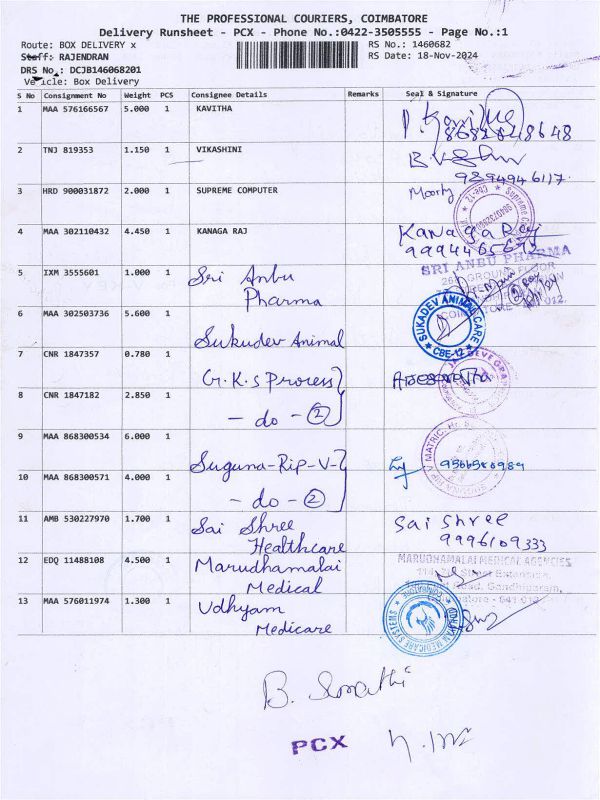 THE PROFESSIONAL COURIERS, COIMBATORE
Delivery Runsheet - PCX - Phone No.:0422-3505555 - Page No.:1
Route: BOX DELIVERY x
RS No.: 1460682
Staff: RAJENDRAN
RS Date: 18-Nov-2024
DRS No.: DCJB146068201
Vehicle: Box Delivery
S No Consignment No Weight PCS Consignee Details Remarks Seal & Signature
1 MAA 576166567 5.000 1 KAVITHA
2 TNJ 819353 1.150 1 VIKASHINI
9894946117
3 HRD 900031872 2.000 1 SUPREME COMPUTER Moorthy
4 MAA 302110432 4.450 1 KANAGA RAJ KANAGA Raj
9994465692
SRI ANBU PHARMA
5 IXM 3555601 1.000 1 Sri Anbu
Pharma
6 MAA 302503736 5.600 1 SUKADEV ANIMAL CARE
Sukudev Animal CBE-12
7 CNR 1847357 0.780 1 G.K.S Process
8 CNR 1847182 2.850 1 - do - 2
9 MAA 868300534 6.000 1 Suguna-Rip-V-
10 MAA 868300571 4.000 1 - do - 2
11 AMB 530227970 1.700 1 Sai Shree Sai Shree
Healthcare 9996109333
12 EDQ 11488108 4.500 1 Marudhamalai MARUDHAMALAI MEDICAL AGENCIES
Medical
13 MAA 576011974 1.300 1 Udhyam UDHYAM MEDICARE SYSTEMS
Medicare
PCX